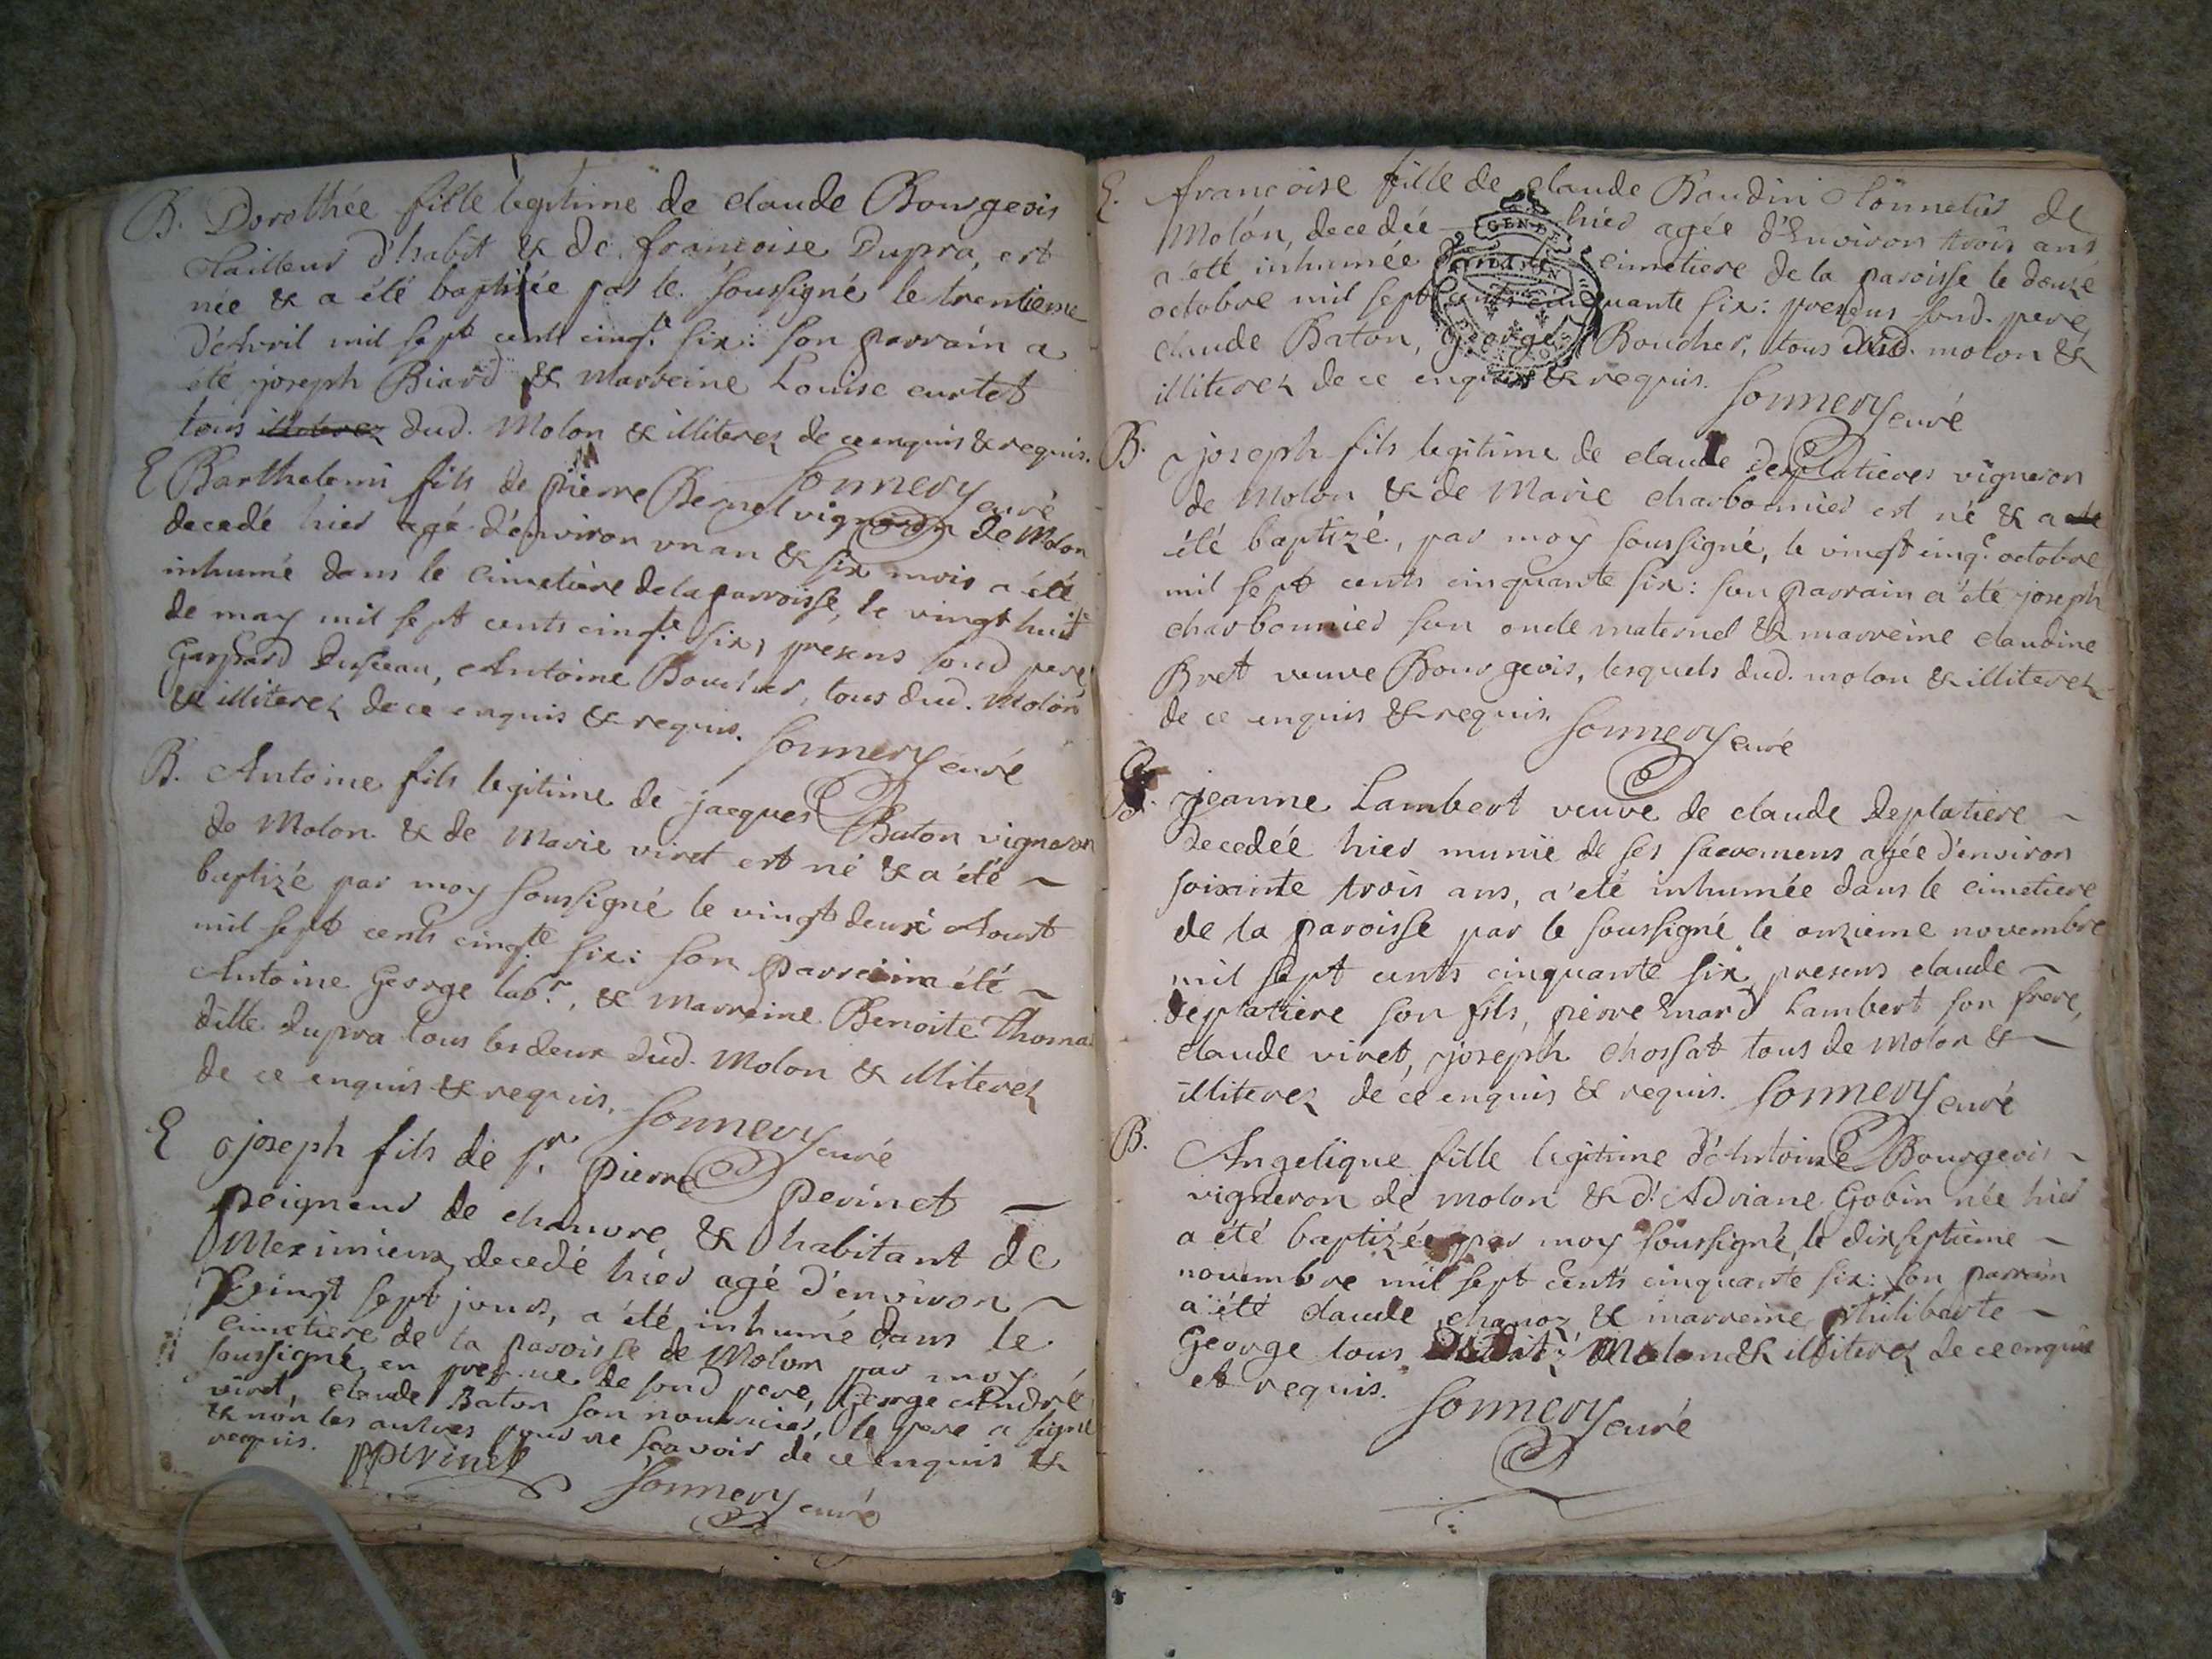 B. Dorothée fille legitime de claude Bourgeois
tailleur d'habit & de francoise Dupra, est
née & a été baptisée par le soussigné le trentieme
d'Avril mil sept cents cinq.te six: son parrain a
été joseph Biard & marreine Louise curtet
tous dud. Molon & illiterez de ce enquis & requis.
Sonnery curé
E Barthelemi fils de pierre Bernel vigneron de Molon
decedé hier agé d'environ un an & six mois a été
inhumé dans le cimetiere de la parroisse, le vingt huit
de may mil sept cents cinq.te six, presens sond pere,
Gaspard, Antoine Boucher, tous dud. Molon
& illiterez de ce enquis & requis. Sonnery curé
B. Antoine fils legitime de jacques Baton vigneron
de Molon & de Marie viret est né & a été
baptizé par moy soussigné le vingt deux Aoust
mil sept cents cinq.te six: son parrain été
Antoine George lab.r, & marreine Benoite Thomas
ditte Dupra tous les deux dud. Molon & illiterez
de ce enquis & requis. Sonnery curé
E joseph fils de s.r pierre perinet
peigneur de chanvre & habitant de
Meximieux decedé hier agé d'environ
vingt sept jours, a été inhumé dans le
cimetiere de la paroisse de Molon par moy
soussigné en presence de sond pere, George André
viret, claude Baton son nourricier, le pere a signé
& non les autres pour ne scavoir de ce enquis &
requis. pperinet Sonnery curé
E. francoise fille de claude Baudin tonnelier de
Molon, decedée hier agée d'Environ trois ans
a été inhumée dans le cimetiere de la paroisse le douze
octobre mil sept cents cinquante six: presens sond. pere,
claude Baton, George Boucher, tous dud. molon &
illiterez de ce enquis & requis. Sonnery curé
B. joseph fils legitime de claude Desplatieres vigneron
de Molon & de Marie charbonnier est né & a
été baptizé, par moy soussigné, le vingt cinq.e octobre
mil sept cents cinquante six: son parrain a été joseph
charbonnier son oncle maternel & marreine claudine
Bret veuve Bourgeois, lesquels dud. molon & illiterez
de ce enquis & requis. Sonnery curé
jeanne Lambert veuve de claude Deplatiere
decedée hier munie de ses sacremens agée d'environ
soixinte trois ans, a été inhumée dans le cimetiere
de la paroisse par le soussigné le onzieme novembre
mil sept cents cinquante six, presens claude
deplatiere son fils, pierre Enard Lambert son frere,
claude viret, joseph chossat tous de Molon &
illiterez de ce enquis & requis. Sonnery curé
B. Angelique fille legitime d'Antoine Bourgeois
vigneron de molon & d'Adriane Gobin née hier
a été baptizée par moy soussigné, le dixseptieme
novembre mil sept cents cinquante six: son parrain
a été claude chanoz & marreine philiberte
George tous Molon & illiterez de ce enquis
et requis. Sonnery curé